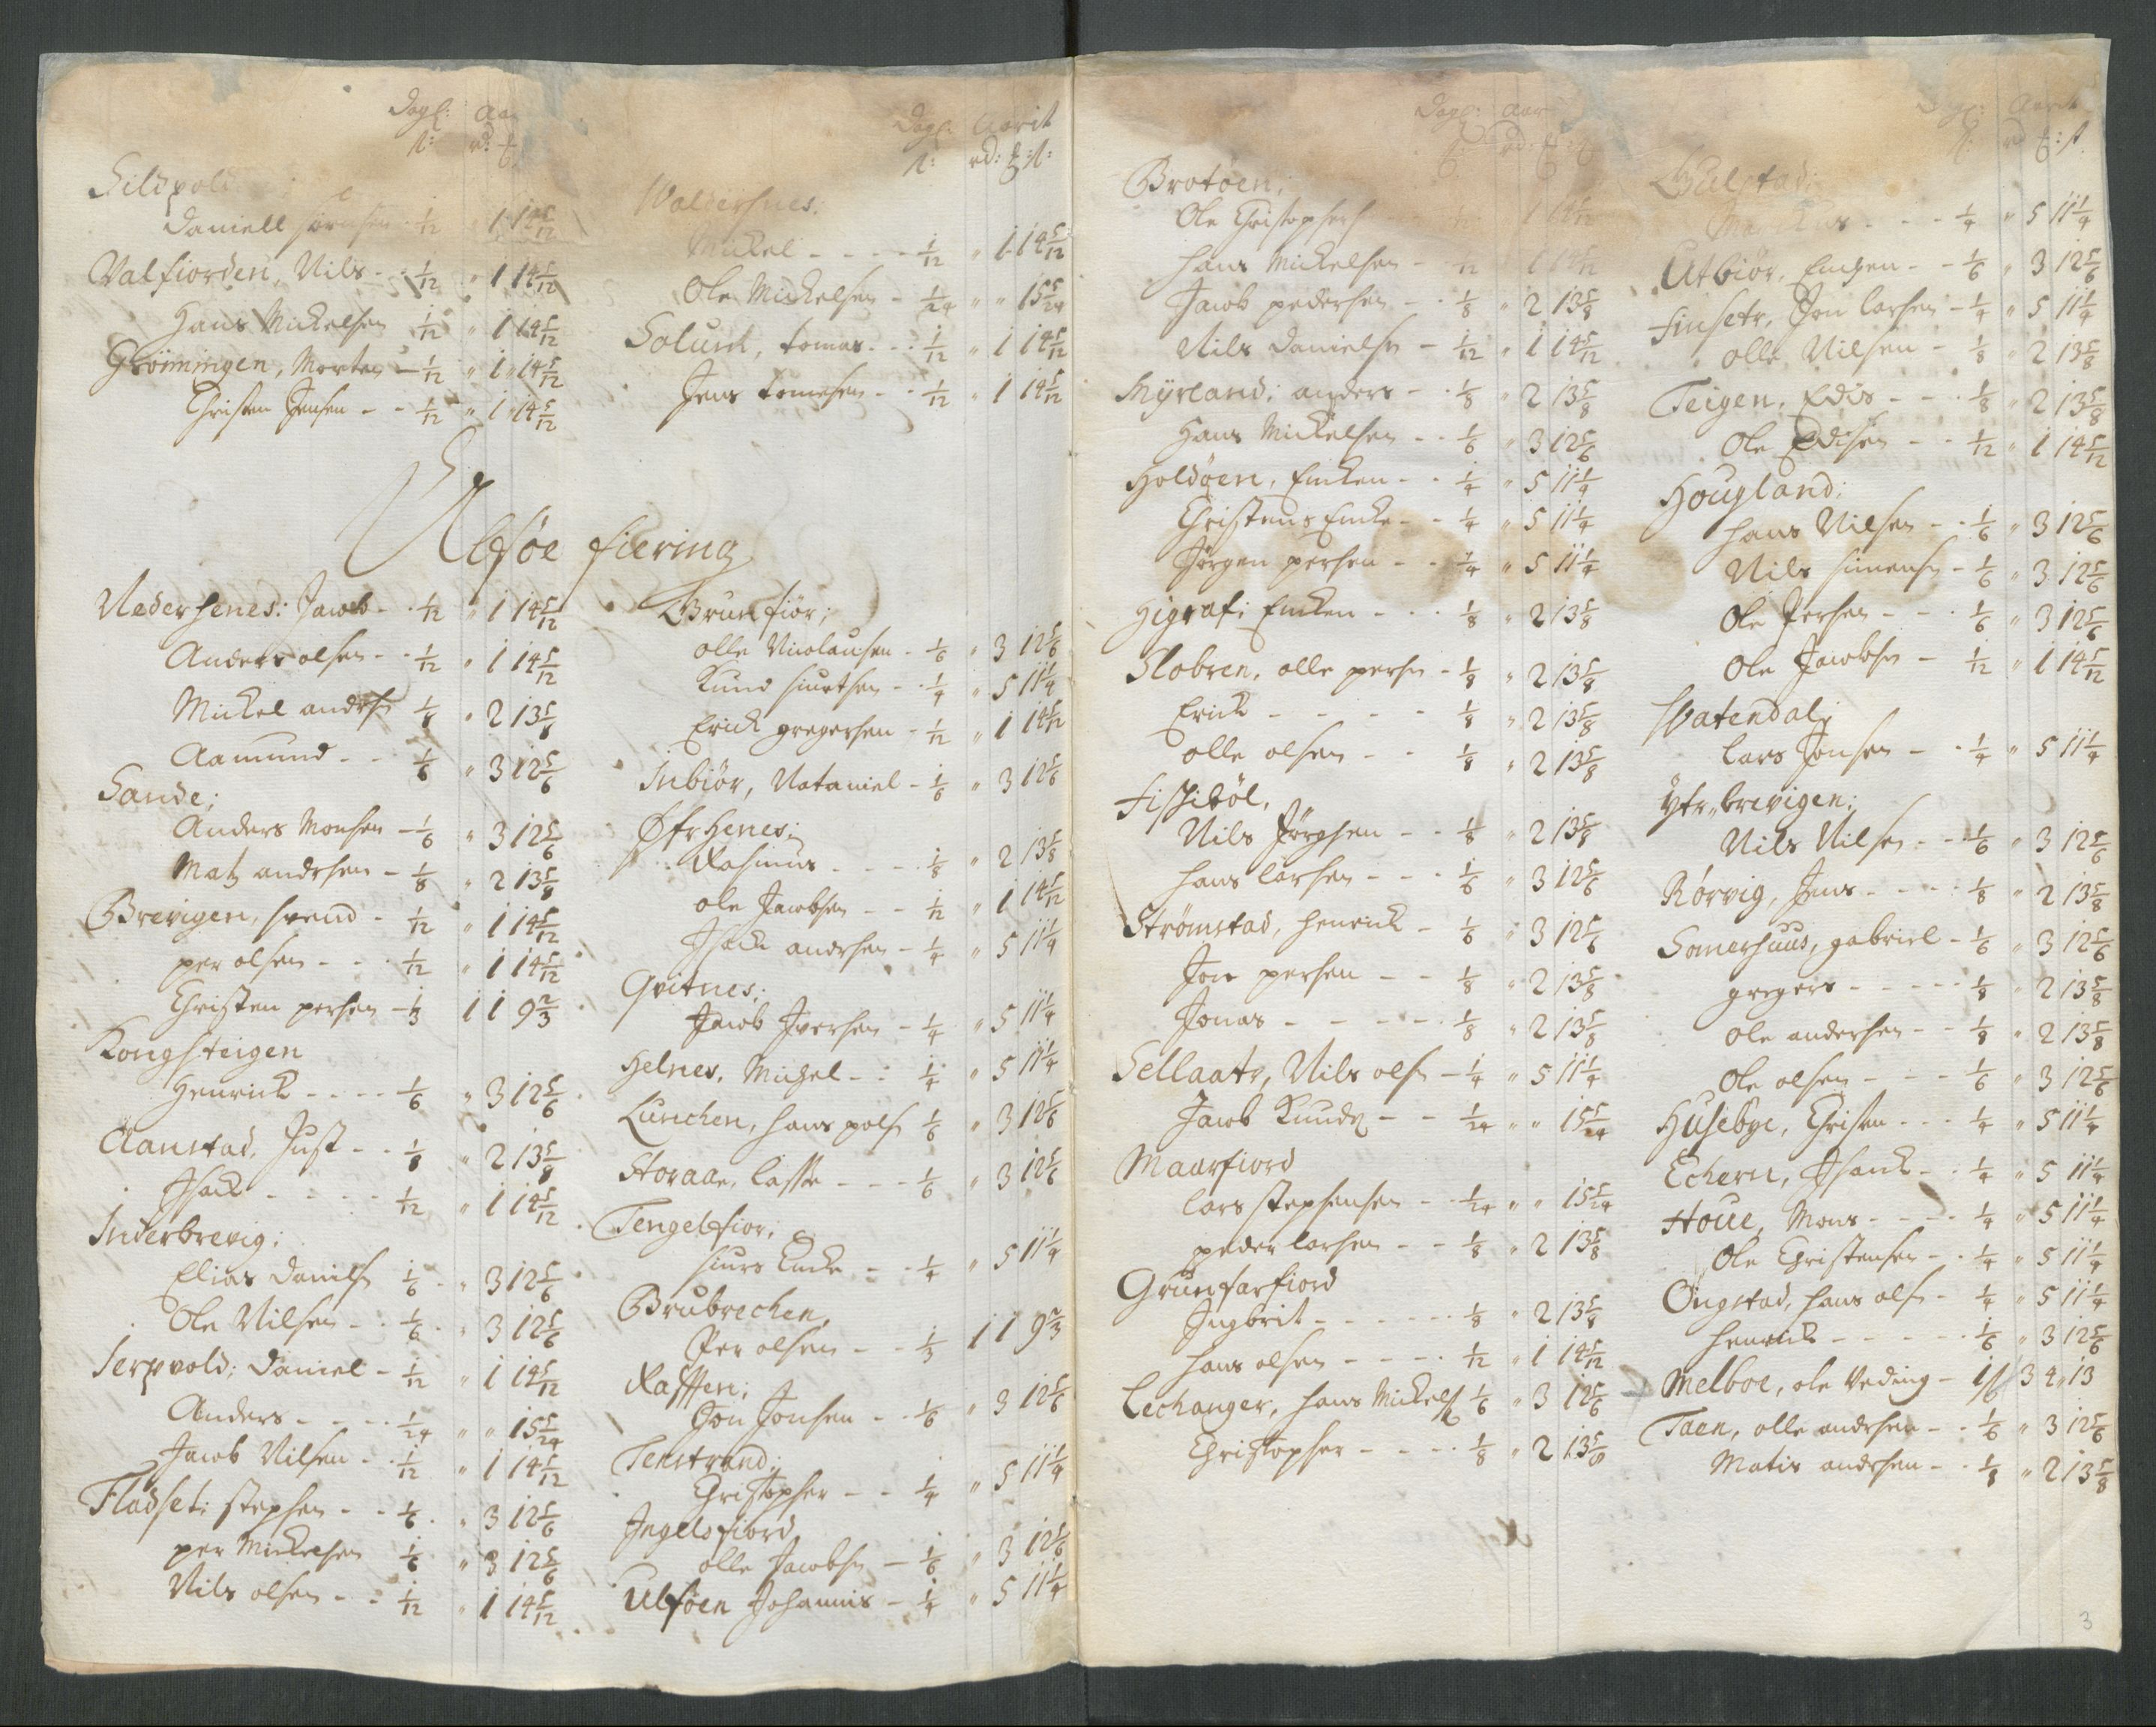 Dagl: Aar
ß: rd: 
Sildpold
Daniell sørensen 1/12 " 1 14 5/12
Valfiorden, Nils - 1/12 " 1 14 5/12
Hans Mickelsen 1/12 " 1 14 5/12
Grøningen, Morten - 1/12 " 1 14 5/12
Christen Jensen - - 1/12 " 1 14 5/12
Dagl: Aarlt
ß: rd: ß:
Waldershnes:
Mickel - - - - 1/12 " 1 14 5/12
Ole Mickelsen - 1/24 " " 15 5/24
Solum, tomas - - 1/12 " 1 14 5/12
Jens tomesen - - 1/12 " 1 14 5/12
Ulfsøe fiering
Nedershenes: Jacob - 1/12 " 1 14 5/12
Anders olsen - - 1/12 " 1 14 5/12
Mickel andersn 1/8 " 2 13 5/8
Aamund - - 1/6 " 3 12 5/6
Sande;
Anders Monsen - 1/6 " 3 12 5/6
Matz andrsen - 1/8 " 2 13 5/8
Brevigen, svend - 1/12 " 1 14 5/12
per olsen - - - 1/12 " 1 14 5/12
Christen persen - 1/3 1 1 9 2/3
Kongsteigen
Henrick - - - - 1/6 " 3 12 5/6
Aanstad, Just - - 1/8 " 2 13 5/8
Isack - - - - 1/12 " 1 14 5/12
Inderbrevig;
Elias Danilsn 1/6 - " 3 12 5/6
Ole Nilsen - - 1/6 - " 3 12 5/6
Serpvold; Daniel - 1/12 " 1 14 5/12
Anders - - - - 1/24 " " 15 5/24
Jacob Nilsen - - 1/12 " 1 14 5/12
Fladset; stephen - - 1/6 - " 3 12 5/6
per Mickelsen 1/6 " 3 12 5/6
Nils olsen - - 1/12 " 1 14 5/12
Brunfiør;
olle Nicolausen - 1/6 " 3 12 5/6
Knud siurtsen - - 1/4 " 5 11 1/4
Erick gregersen - 1/12 " 1 14 5/12
Inbiør, Nataniel - 1/6 " 3 12 5/6
Øfrhenes;
Rasmus - - - - 1/8 " 2 13 5/8
ole Jacobsen - - 1/12 " 1 14 5/12
Isack andrsen - 1/4 " 5 11 1/4
Qvitnes;
Jacob Iversen - 1/4 " 5 11 1/4
Helnes, Michel - : 1/4 " 5 11 1/4
Lunchen, hans polsn 1/6 " 3 12 5/6
Storaae, lasse - - - 1/6 " 3 12 5/6
Tengelfior;
siurs Encke - - 1/4 " 5 11 1/4
Brubrechen,
Per olsen - - 1/3 1 1 9 2/3
Rafften;
Jon Jonsen - - 1/6 " 3 12 5/6
Tenstrand;
Christopher - - 1/4 " 5 11 1/4
Ingelsfiord,
olle Jacobsn - 1/6 " 3 12 5/6
Ulføen Johannis - 1/4 " 5 11 1/4
Dagl: Aar
Brotøen;
Ole Christophers 1/12 1 14 5/12
hans Mickelsen - 1/12 1 14 5/12
Jacob pedersen - - 1/8 " 2 13 5/8
Nils Danielsn - 1/12 " 1 14 5/12
Myrland; anders - - 1/8 " 2 13 5/8
Hans Mickelsen - - 1/6 " 3 12 5/6
Holdøen, Encken - - 1/4 " 5 11 1/4
Christens Encke - - 1/4 " 5 11 1/4
Jørgen persen - - 1/4 " 5 11 1/4
Higraf; Encken - - - 1/8 " 2 13 5/8
Slobren, olle persn - 1/8 " 2 13 5/8
Erick - - - - 1/8 " 2 13 5/8
olle olsen - - 1/8 " 2 13 5/8
Fiskbøl,
Nils Jørgsen - - 1/8 " 2 13 5/8
hans larsen - - - 1/6 " 3 12 5/6
Strømstad, henrick - 1/6 " 3 12 5/6
Jon persen - - 1/8 " 2 13 5/8
Jonas - - - - - 1/8 " 2 13 5/8
Sellaatr, Nils olsn - 1/4 " 5 11 1/4
Jacob Knuds - - 1/24 " " 15 5/24
Maarfiord
lars stephensen - - 1/24 " " 15 5/24
peder larsen - - 1/8 " 2 13 5/8
Grunfarfiord
Ingbrit - - - - - - 1/8 " 2 13 5/8
hans olsen - - - - 1/12 " 1 14 5/12
Lechanger, hans Mickels 1/6 " 3 12 5/6
Christopher - - - - 1/8 " 2 13 5/8
Dagl: Aarlt
ß: rd ß:
Gulstad;
Marckus - - - 1/4 " 5 11 1/4
Utbiør, Encken - - 1/6 " 3 12 5/6
Finsetr, Jon larsen - 1/4 " 5 11 1/4
olle Nilsen - 1/8 " 2 13 5/8
Teigen, Edis - - - 1/8 " 2 13 5/8
Ole Edisen - - 1/12 " 1 14 5/12
Hougland;
hans Nilsen - - 1/6 " 3 12 5/6
Nils simensn - 1/6 " 3 12 5/6
Ole Persen - - - 1/6 " 3 12 5/6
Ole Jacobsn - 1/12 " 1 14 5/12
Watendal;
lars Jonsen - - 1/4 " 5 11 1/4
Ytr,, brevigen;
Nils Nilsen - - 1/6 " 3 12 5/6
Rørvig, Jens - - - - 1/8 " 2 13 5/8
Somershuus, gabriel - 1/6 " 3 12 5/6
gregers - - - - - 1/8 " 2 13 5/8
ole andersen - - 1/8 " 2 13 5/8
Ole olsen - - - 1/6 " 3 12 5/6
Husebye, Christen - - - 1/4 " 5 11 1/4
Echern, Isack - - 1/4 " 5 11 1/4
Houe, Mons - - - - 1/4 " 5 11 1/4
Ole Christensen - - 1/4 " 5 11 1/4
Ongstad, hans olsn - 1/4 " 5 11 1/4
henrick - - - - - 1/6 " 3 12 5/6
Melboe, ole Veding - 1ß 3 4 " 13
Taen, olle andrsen - - 1/6 " 3 12 5/6
Matis andrsen - - 1/8 " 2 13 5/8
3